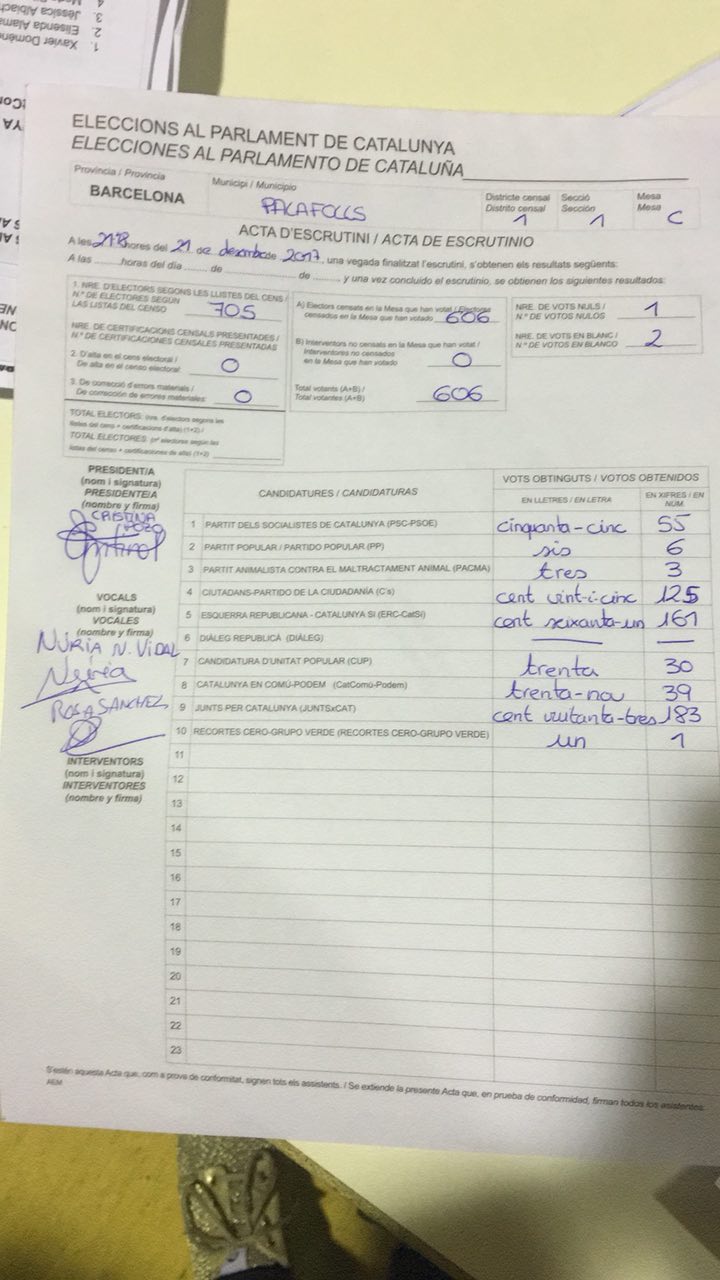 1. Xavier Domène
2. Elisenda Alama
3. Jèssica Albiach
ELECCIONS AL PARLAMENT DE CATALUNYA
ELECCIONES AL PARLAMENTO DE CATALUÑA
Província / Provincia
BARCELONA
Municipi / Municipio
PALAFOLLS
Districte censal
Distrito censal
1
Secció
Sección
1
Mesa
Mesa
C
ACTA D'ESCRUTINI / ACTA DE ESCRUTINIO
A les 21'18 hores del 21 de desembre de 2017, una vegada finalitzat l'escrutini, s'obtenen els resultats següents:
A las ......... horas del día ........ de ........................ de ........., y una vez concluido el escrutinio, se obtienen los siguientes resultados:
1. NRE. D'ELECTORS SEGONS LES LLISTES DEL CENS /
N.º DE ELECTORES SEGÚN
LAS LISTAS DEL CENSO 705
NRE. DE CERTIFICACIONS CENSALS PRESENTADES /
N.º DE CERTIFICACIONES CENSALES PRESENTADAS
2. D'alta en el cens electoral /
De alta en el censo electoral: 0
3. De correcció d'errors materials /
De corrección de errores materiales: 0
TOTAL ELECTORS: (nre. d'electors segons les
llistes del cens + certificacions d'alta) (1+2) /
TOTAL ELECTORES: (nº electores según las
listas del censo + certificaciones de alta) (1+2)
A) Electors censats en la Mesa que han votat / Electores
censados en la Mesa que han votado 606
B) Interventors no censats en la Mesa que han votat /
Interventores no censados
en la Mesa que han votado 0
Total votants (A+B) /
Total votantes (A+B) 606
NRE. DE VOTS NULS /
N.º DE VOTOS NULOS 1
NRE. DE VOTS EN BLANC /
N.º DE VOTOS EN BLANCO 2
PRESIDENT/A
(nom i signatura)
PRESIDENTE/A
(nombre y firma)
CRISTINA
POZO
VOCALS
(nom i signatura)
VOCALES
(nombre y firma)
NÚRIA N. VIDAL
Núria
ROSA SANCHEZ
INTERVENTORS
(nom i signatura)
INTERVENTORES
(nombre y firma)
CANDIDATURES / CANDIDATURAS
VOTS OBTINGUTS / VOTOS OBTENIDOS
EN LLETRES / EN LETRA
EN XIFRES / EN NÚM.
1 PARTIT DELS SOCIALISTES DE CATALUNYA (PSC-PSOE) cinquanta-cinc 55
2 PARTIT POPULAR / PARTIDO POPULAR (PP) sis 6
3 PARTIT ANIMALISTA CONTRA EL MALTRACTAMENT ANIMAL (PACMA) tres 3
4 CIUTADANS-PARTIDO DE LA CIUDADANÍA (C's) cent vint-i-cinc 125
5 ESQUERRA REPUBLICANA - CATALUNYA SÍ (ERC-CatSí) cent seixanta-un 161
6 DIÀLEG REPUBLICÀ (DIÀLEG) — —
7 CANDIDATURA D'UNITAT POPULAR (CUP) trenta 30
8 CATALUNYA EN COMÚ-PODEM (CatComú-Podem) trenta-nou 39
9 JUNTS PER CATALUNYA (JUNTSxCAT) cent vuitanta-tres 183
10 RECORTES CERO-GRUPO VERDE (RECORTES CERO-GRUPO VERDE) un 1
11
12
13
14
15
16
17
18
19
20
21
22
23
S'estén aquesta Acta que, com a prova de conformitat, signen tots els assistents. / Se extiende la presente Acta que, en prueba de conformidad, firman todos los asistentes.
AEM